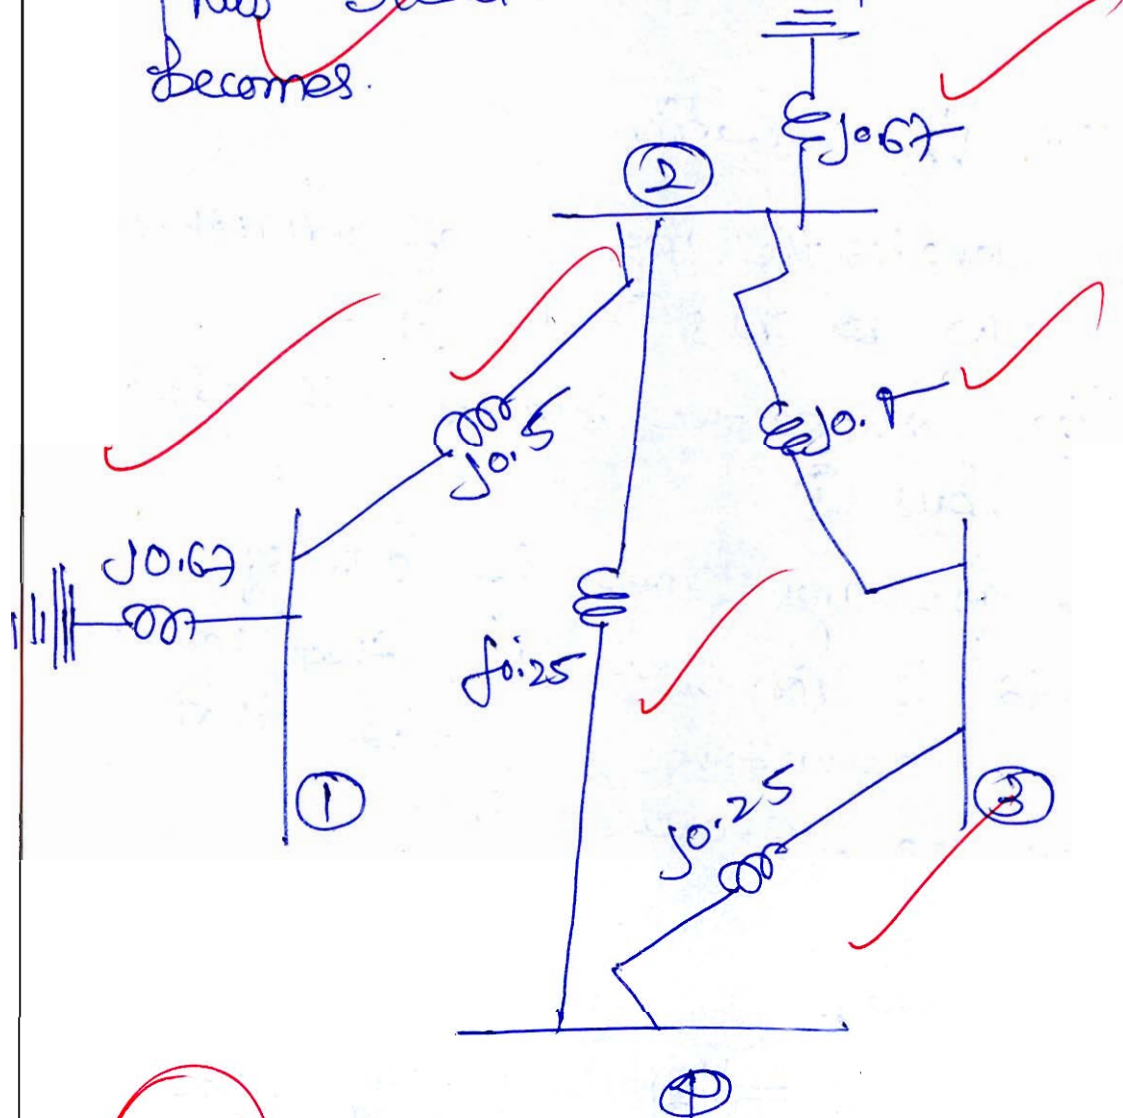 becomes.
j0.67
2
j0.5
j0.
j0.67
j0.25
1
j0.25
3
4